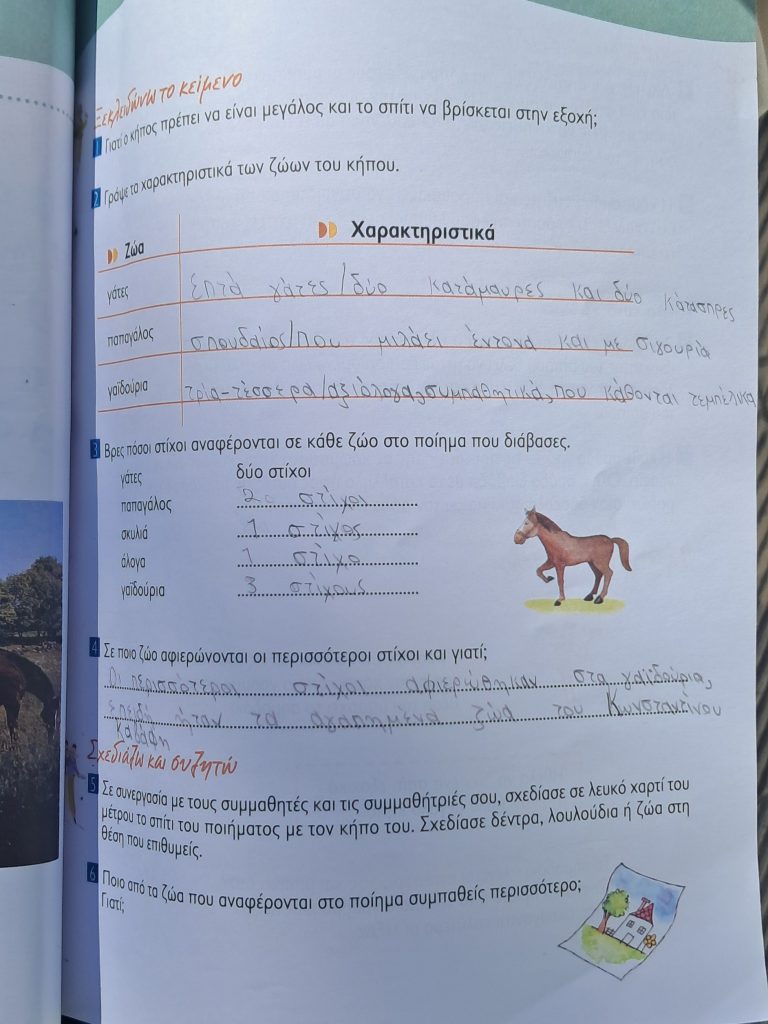 Ξεκλειδώνω το κείμενο
1 Γιατί ο κήπος πρέπει να είναι μεγάλος και το σπίτι να βρίσκεται στην εξοχή;
2 Γράψε τα χαρακτηριστικά των ζώων του κήπου.
Ζώα Χαρακτηριστικά
γάτες επτά γάτες/δύο κατάμαυρες και δύο κάτασπρες
παπαγάλος σπουδαίος/που μιλάει έντονα και με σιγουριά
γαϊδούρια τρία-τέσσερα/αξιόλογα, συμπαθητικά, που κάθονται τεμπέλικα
3 Βρες πόσοι στίχοι αναφέρονται σε κάθε ζώο στο ποίημα που διάβασες.
γάτες δύο στίχοι
παπαγάλος 2 στίχοι
σκυλιά 1 στίχος
άλογα 1 στίχο
γαϊδούρια 3 στίχους
4 Σε ποιο ζώο αφιερώνονται οι περισσότεροι στίχοι και γιατί;
Οι περισσότεροι στίχοι αφιερώθηκαν στα γαϊδούρια,
επειδή ήταν τα αγαπημένα ζώα του Κωνσταντίνου
Καβάφη
Σχεδιάζω και συζητώ
5 Σε συνεργασία με τους συμμαθητές και τις συμμαθήτριές σου, σχεδίασε σε λευκό χαρτί του
μέτρου το σπίτι του ποιήματος με τον κήπο του. Σχεδίασε δέντρα, λουλούδια ή ζώα στη
θέση που επιθυμείς.
6 Ποιο από τα ζώα που αναφέρονται στο ποίημα συμπαθείς περισσότερο;
Γιατί;